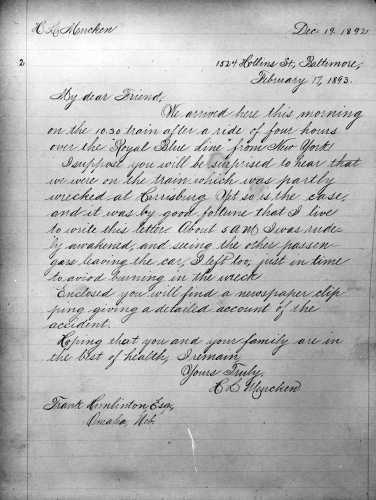 H L Mencken Dec. 19. 1892
2
1524 Hollins St, Baltimore,
February 17, 1893.
My dear Friend,
We arrived here this morning
on the 10.30 train after a ride of four hours
over the Royal Blue line from New York!
I suppose you will be surprised to hear that
we were on the train which was partly
wrecked at Yet so is the case,
and it was by good fortune that I live
to write this letter. About 5 A.M. I was rude-
ly awakened, and seeing the other passen-
gers leaving the car, I left too, just in time
to aviod burning in the wreck
Enclosed you will find a newspaper clip
ping giving a detailed account of the
accident.
Hoping that you and your family are in
the best of health, I remain
Yours Truly,
H L Mencken
Frank Esq,
Omaha, Neb.